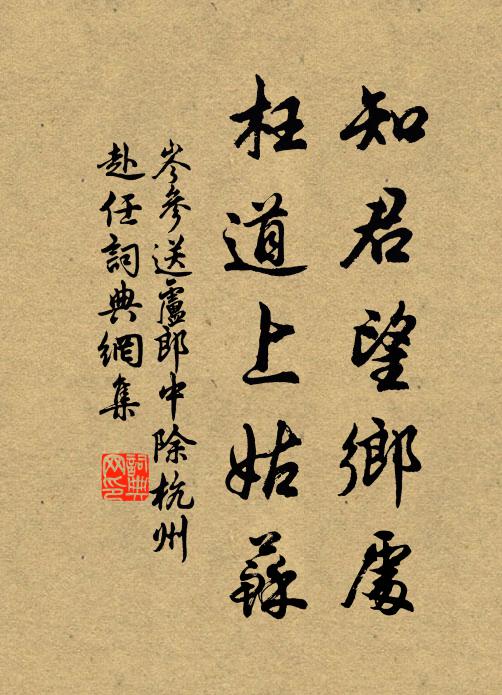 知君望鄉處
枉道上姑蘇
岑參送盧郎中除杭州
赴任詞典網集
詞典
网印